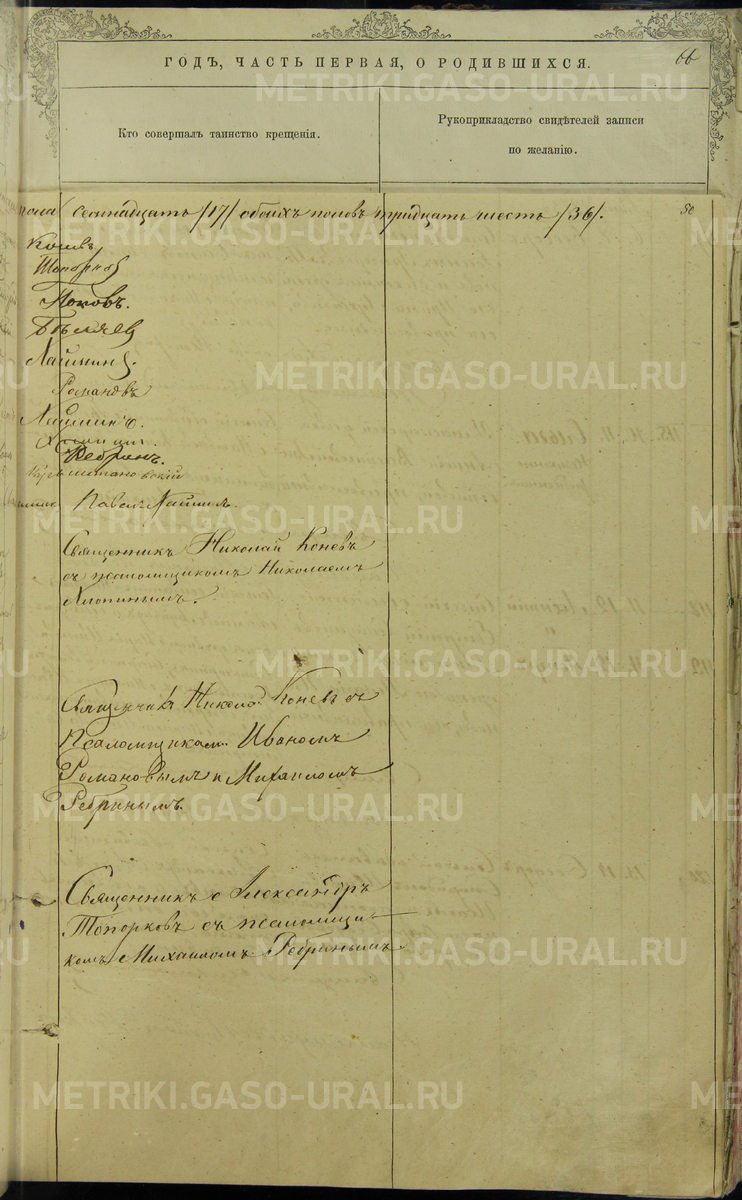 ГОДЪ, ЧАСТЬ ПЕРВАЯ, О РОДИВШИХСЯ.
66
Кто совершалъ таинство крещенія.
Рукоприкладство свидѣтелей записи
по желанію.
пола семнадцать /17/ обоихъ половъ тридцать шесть /36/.
50
Коневъ
Топорков
Поповъ.
Бѣляев
Романовъ
Ребринъ.
Павелъ
Священникъ Николай Коневъ
съ псаломщикомъ Николаемъ
Хлопинымъ.
Священникъ Никола Коневъ съ
Псаломщикам Иваномъ
Романовымъ и Михаиломъ
Ребринымъ
Священникъ Александръ
Топорковъ съ псаломщи-
комъ Михаиломъ Ребринымъ.
METRIKI.GASO-URAL.RU